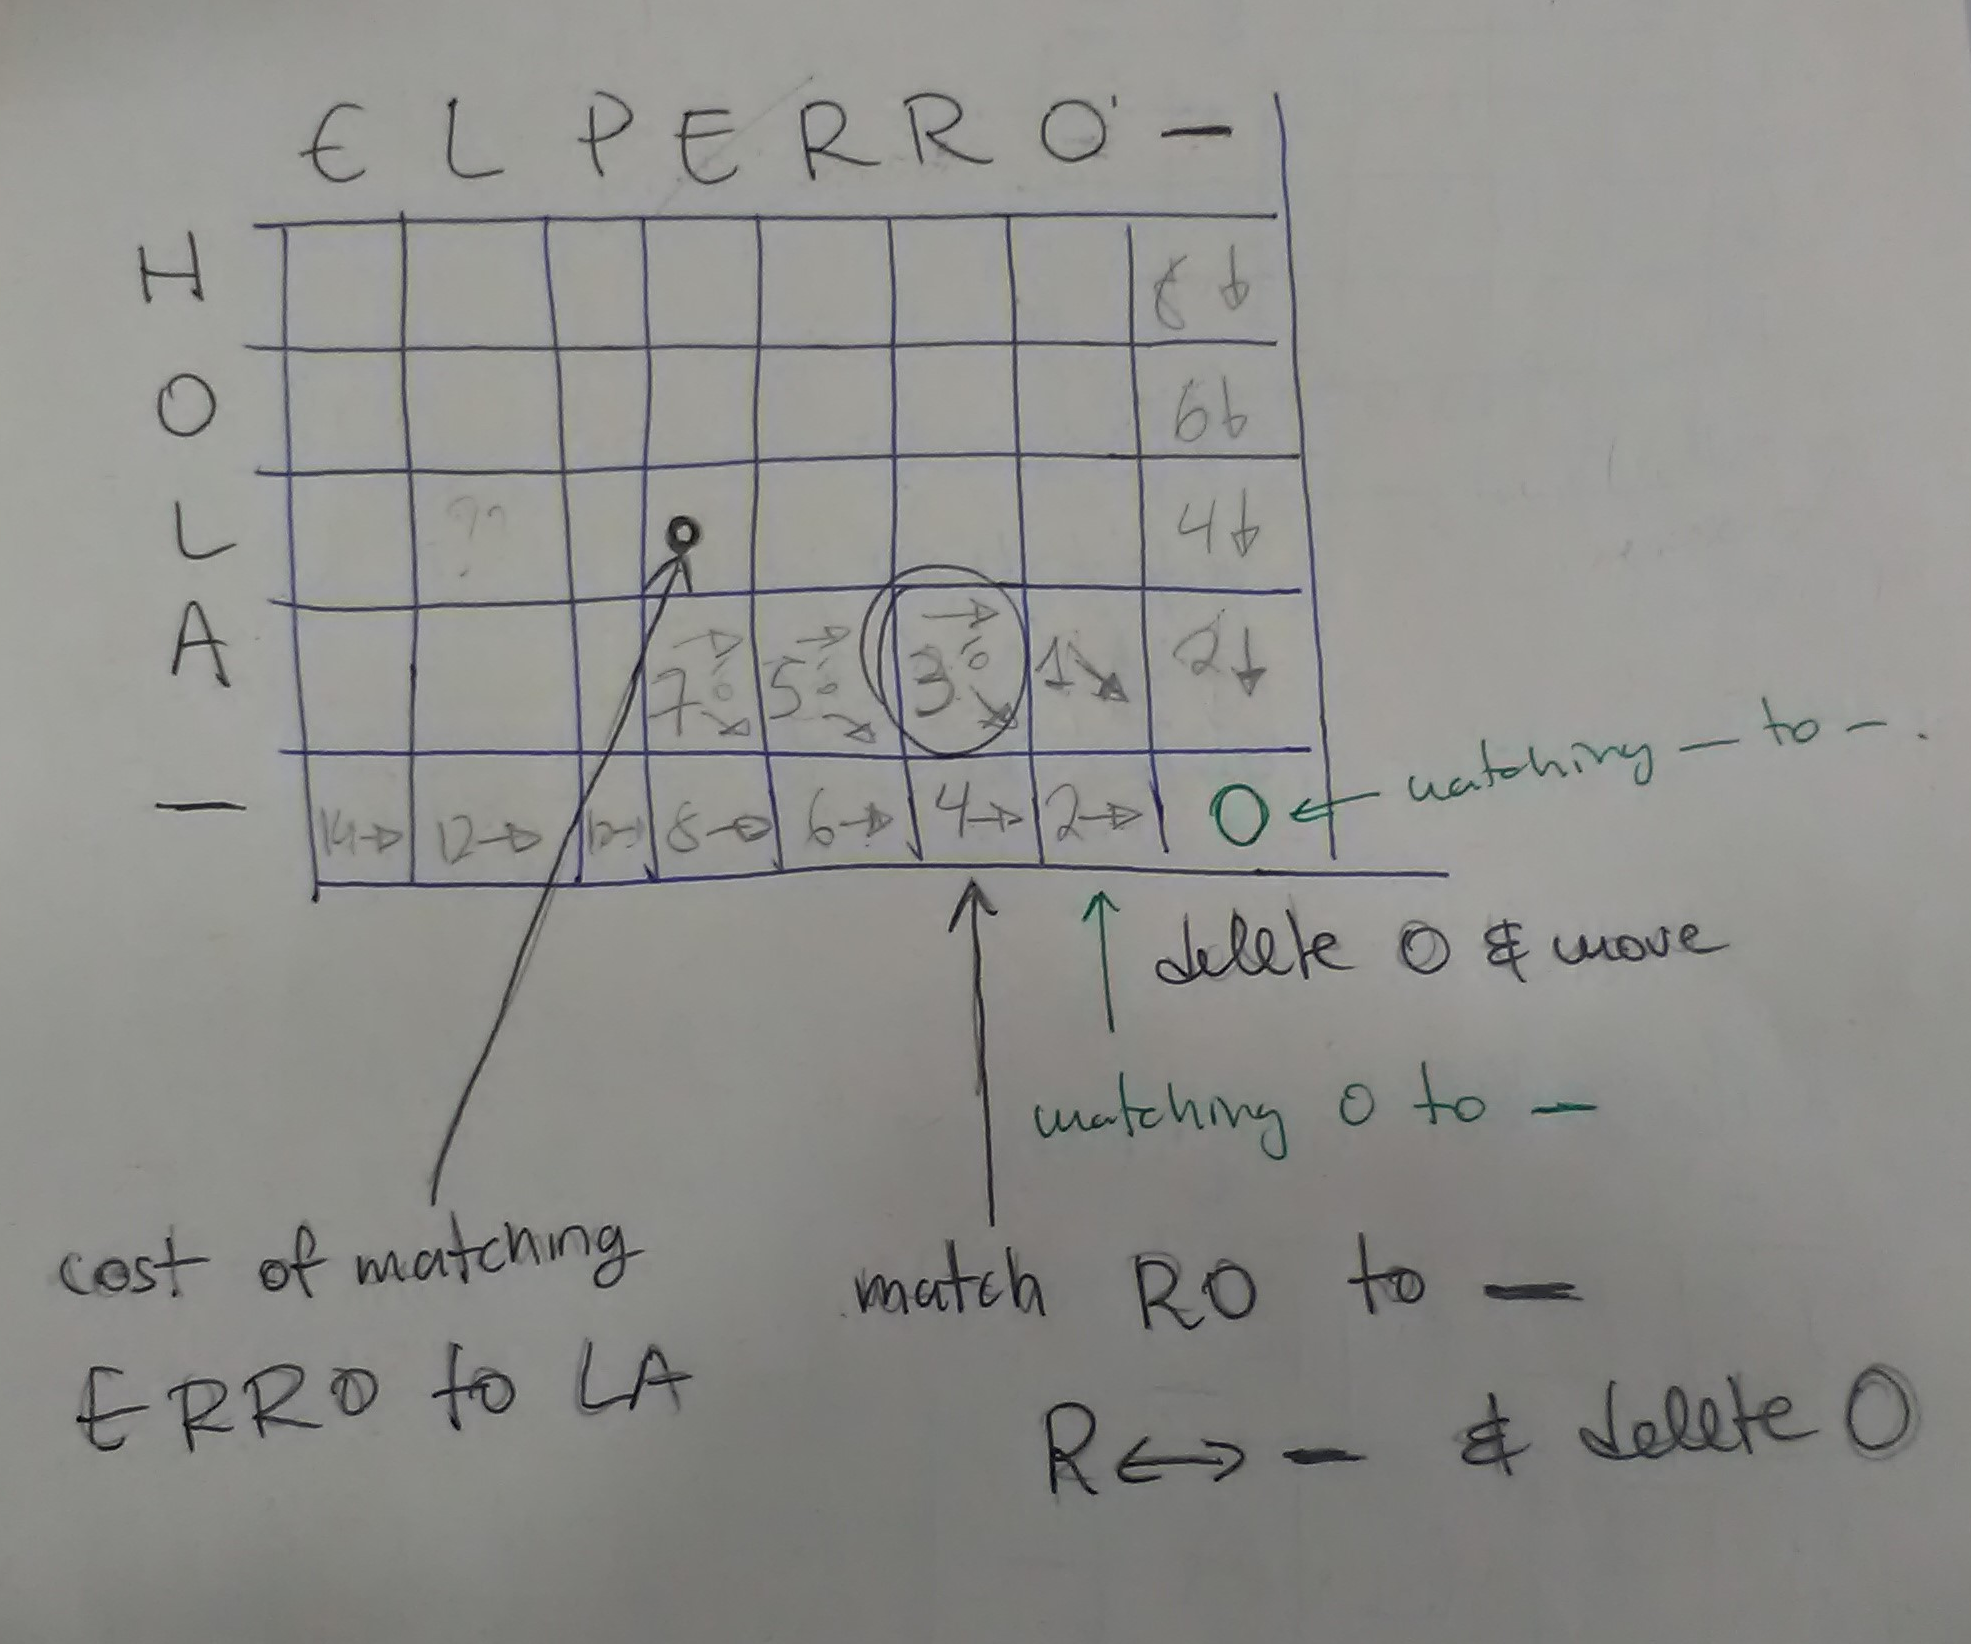 E L P E R R O -
H 8 ↓
O 6 ↓
L ?? 4 ↓
A 7 → ó ↘ 5 → ó ↘ 3 → ó ↘ 1 ↘ 2 ↓
- 14 → 12 → 8 → 6 → 4 → 2 → 0 ← matching - to - .
delete O & move
matching O to -
cost of matching
ERRO to LA
match RO to -
R ↔ - & delete O